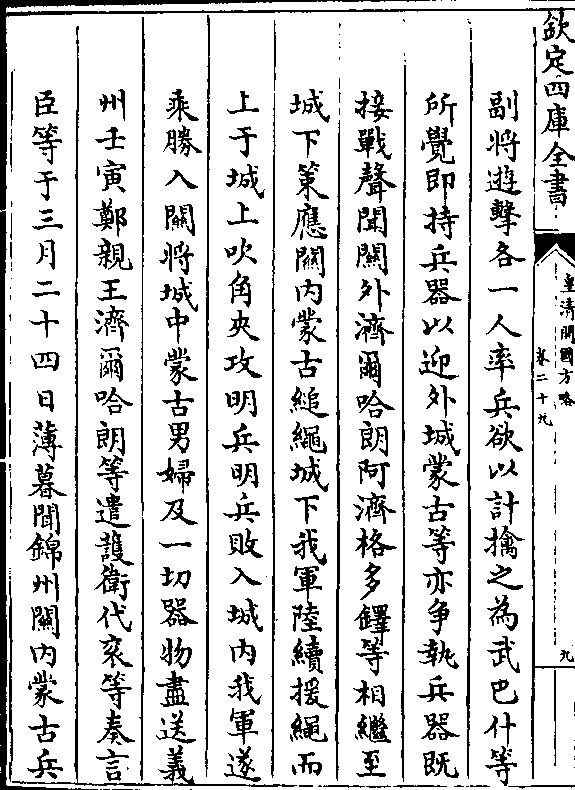 欽定四庫全書
皇清開國方略
卷二十九
九
副將遊擊各一人率兵欲以計擒之為武巴什等
所覺即持兵器以迎外城蒙古等亦争執兵器既
接戰聲聞關外濟爾哈朗阿濟格多鐸等相繼至
城下策應關内蒙古縋繩城下我軍陸續援繩而
上于城上吹角夾攻明兵明兵敗入城内我軍遂
乘勝入關將城中蒙古男婦及一切器物盡送義
州壬寅鄭親王濟爾哈朗等遣䕶衛代衮等奏言
臣等于三月二十四日薄暮聞錦州關内蒙古兵